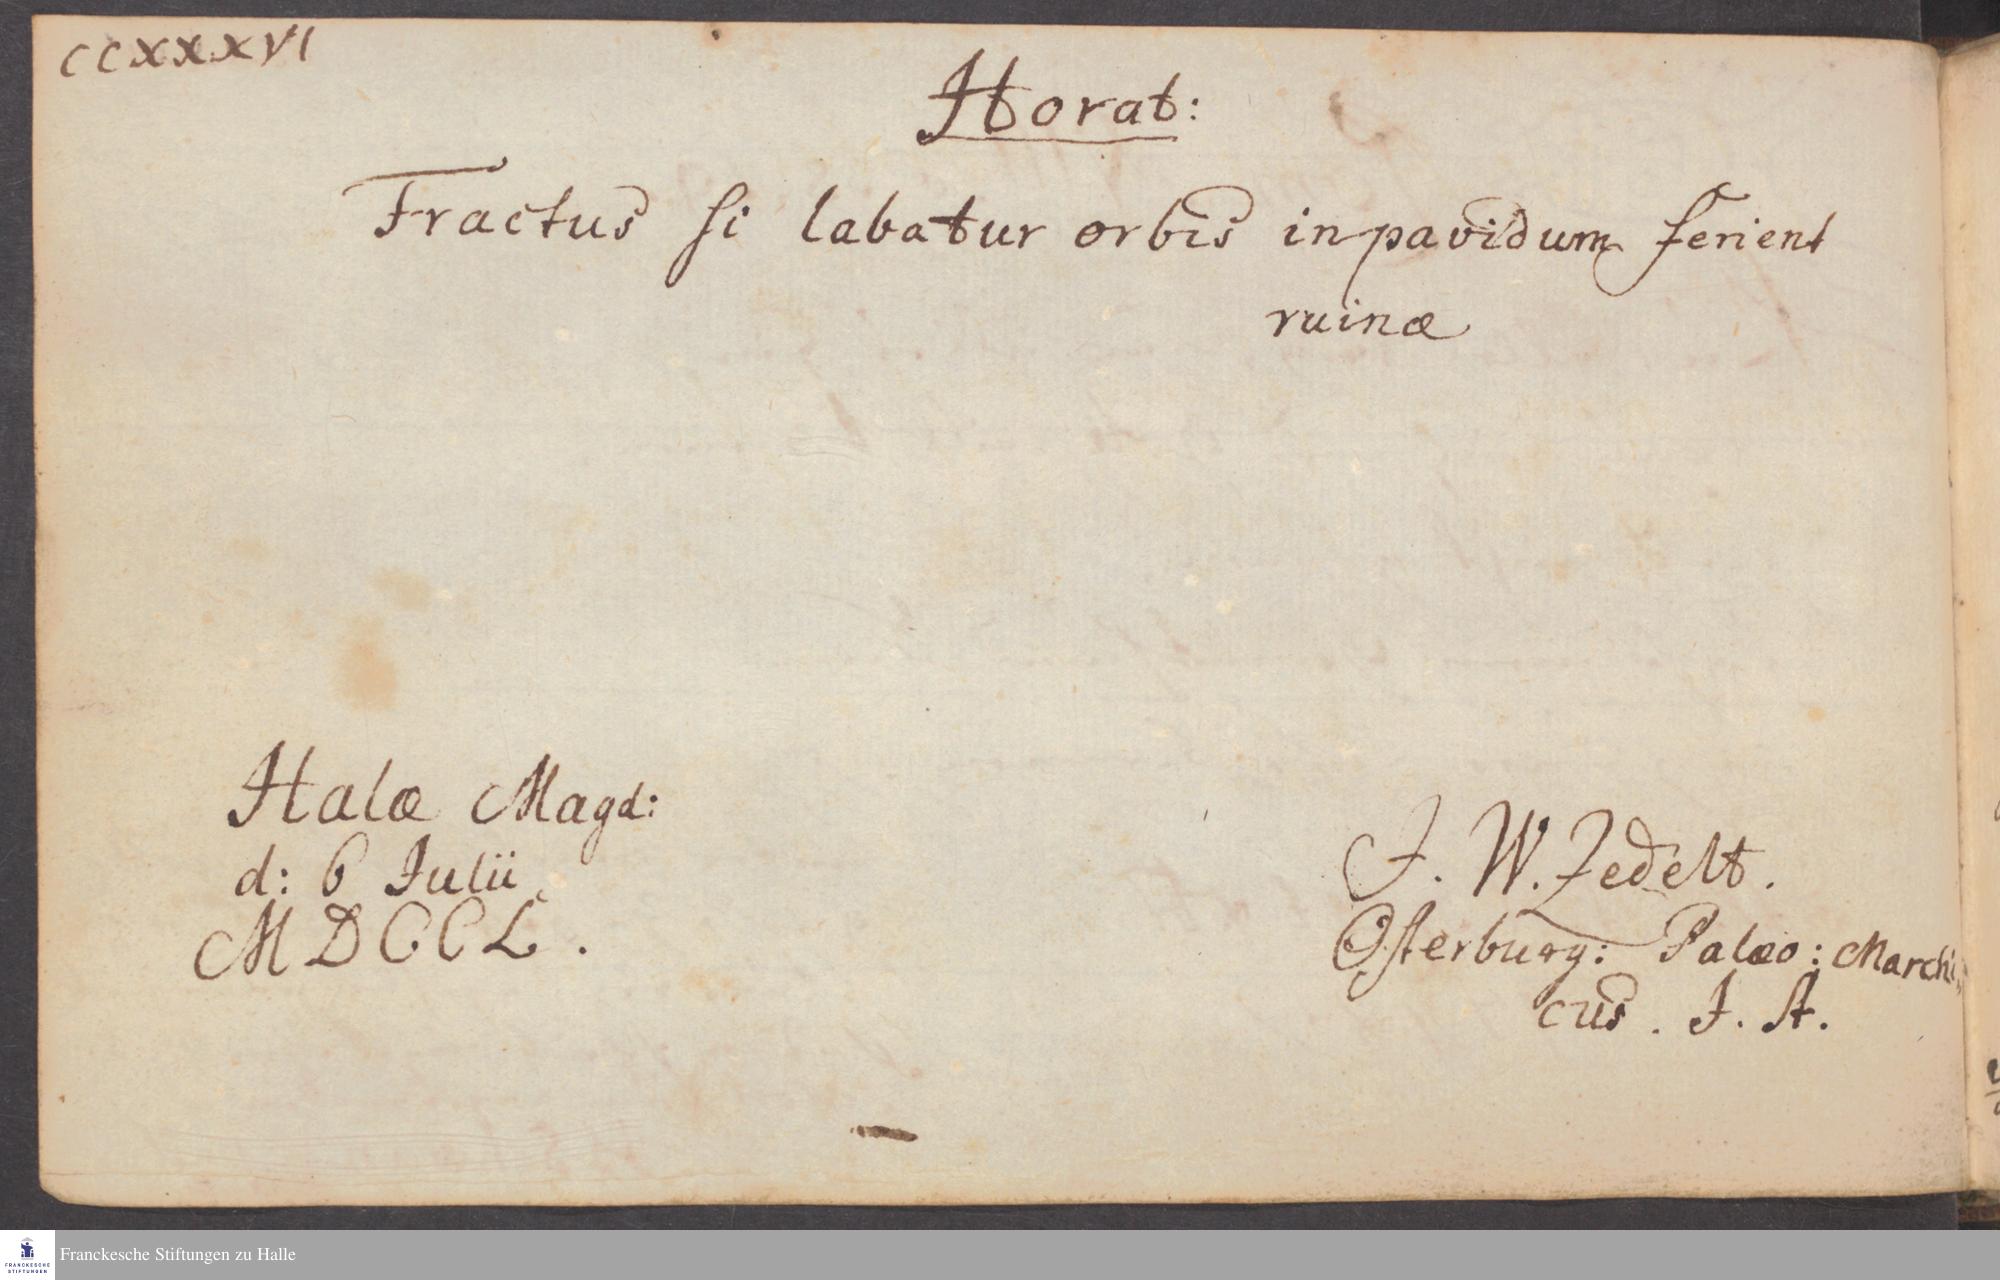 CCXXXVI
Horat:
Fractus si labatur orbis inpavidum ferient
ruinæ
Halæ Magd:
d: 6 Julii
MDCCL.
J. W. Zedelt.
Osterburg: Palæo: Marchi,,
cus. J. A.
Franckesche Stiftungen zu Halle
FRANCKESCHE
STIFTUNGEN